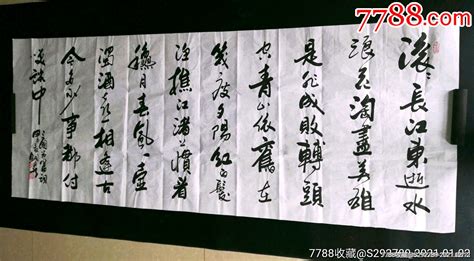 7788.com
滚々長江東逝水
浪花淘盡英雄
是非成敗轉頭
空青山依舊在
幾度夕陽紅白髮
漁樵江渚上慣看
秋月春風一壺
濁酒喜相逢古
今多少事都付
笑談中
7788收藏